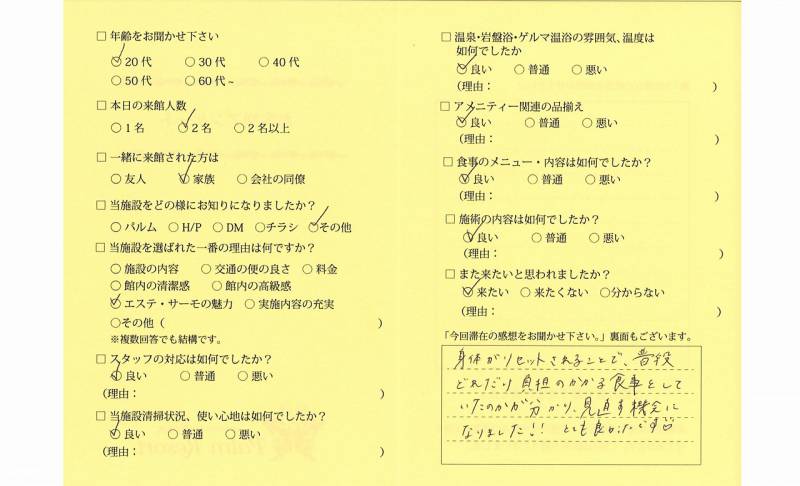 □ 年齢をお聞かせ下さい
○20代 ○30代 ○40代
○50代 ○60代~
□ 本日の来館人数
○1名 ○2名 ○2名以上
□ 一緒に来館された方は
○友人 ○家族 ○会社の同僚
□ 当施設をどの様にお知りになりましたか？
○パルム ○H/P ○DM ○チラシ ○その他
□ 当施設を選ばれた一番の理由は何ですか？
○施設の内容 ○交通の便の良さ ○料金
○館内の清潔感 ○館内の高級感
○エステ・サーモの魅力 ○実施内容の充実
○その他（ ）
※複数回答でも結構です。
□ スタッフの対応は如何でしたか？
○良い ○普通 ○悪い
（理由： ）
□ 当施設清掃状況、使い心地は如何でしたか？
○良い ○普通 ○悪い
（理由： ）
□ 温泉・岩盤浴・ゲルマ温浴の雰囲気、温度は
如何でしたか
○良い ○普通 ○悪い
（理由： ）
□ アメニティー関連の品揃え
○良い ○普通 ○悪い
（理由： ）
□ 食事のメニュー・内容は如何でしたか？
○良い ○普通 ○悪い
（理由： ）
□ 施術の内容は如何でしたか？
○良い ○普通 ○悪い
（理由： ）
□ また来たいと思われましたか？
○来たい ○来たくない ○分からない
（理由： ）
「今回滞在の感想をお聞かせ下さい。」裏面もございます。
身体がリセットされることで、普段
どれだけ負担のかかる食事をして
いたのかが分かり、見直す機会に
なりました!! とても良かったです